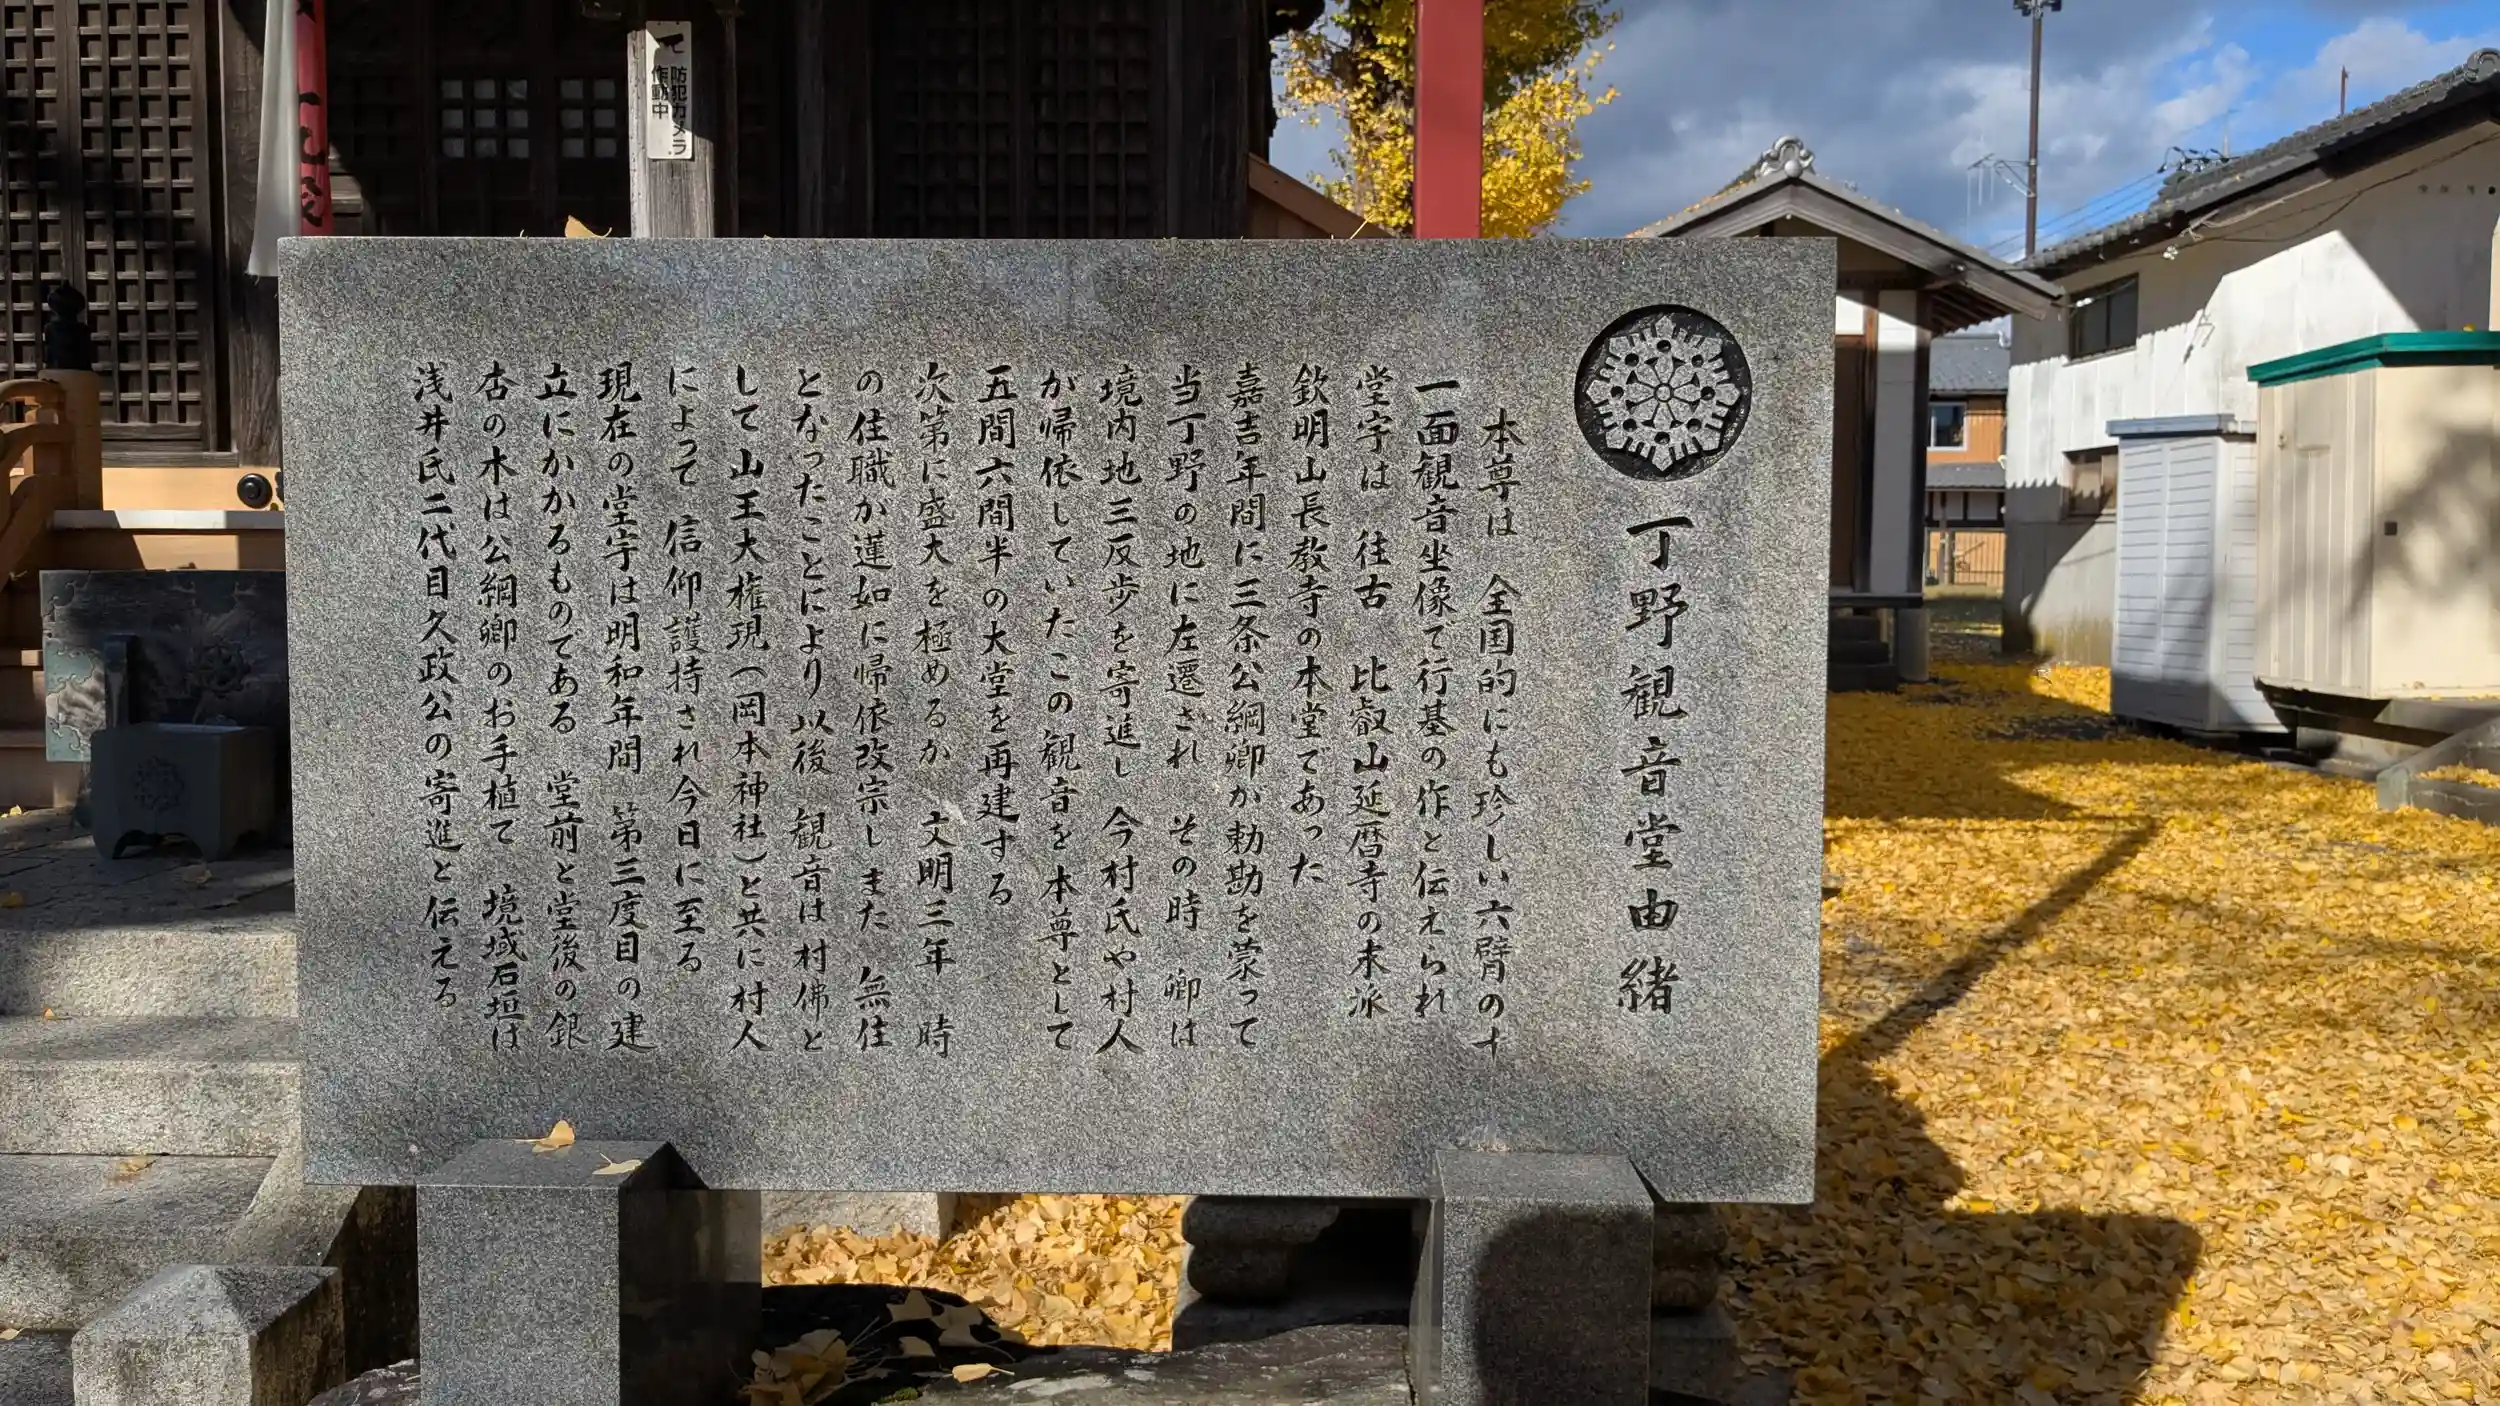 丁野観音堂由緒
本尊は 全国的にも珍しい六臂の十
一面観音坐像で行基の作と伝えられ
堂宇は 往古 比叡山延暦寺の末派
欽明山長教寺の本堂であった
嘉吉年間に三条公綱卿が勅勘を蒙って
当丁野の地に左遷され その時 卿は
境内地三反歩を寄進し 今村氏や村人
が帰依していたこの観音を本尊として
五間六間半の大堂を再建する
次第に盛大を極めるか 文明三年 時
の住職か蓮如に帰依改宗しまた 無住
となったことにより以後 観音は村佛と
して山王大権現(岡本神社)と共に村人
によって 信仰護持され今日に至る
現在の堂宇は明和年間 第三度目の建
立にかかるものである 堂前と堂後の銀
杏の木は公綱卿のお手植て 境域石垣は
浅井氏二代目久政公の寄進と伝える
防犯カメラ
作動中